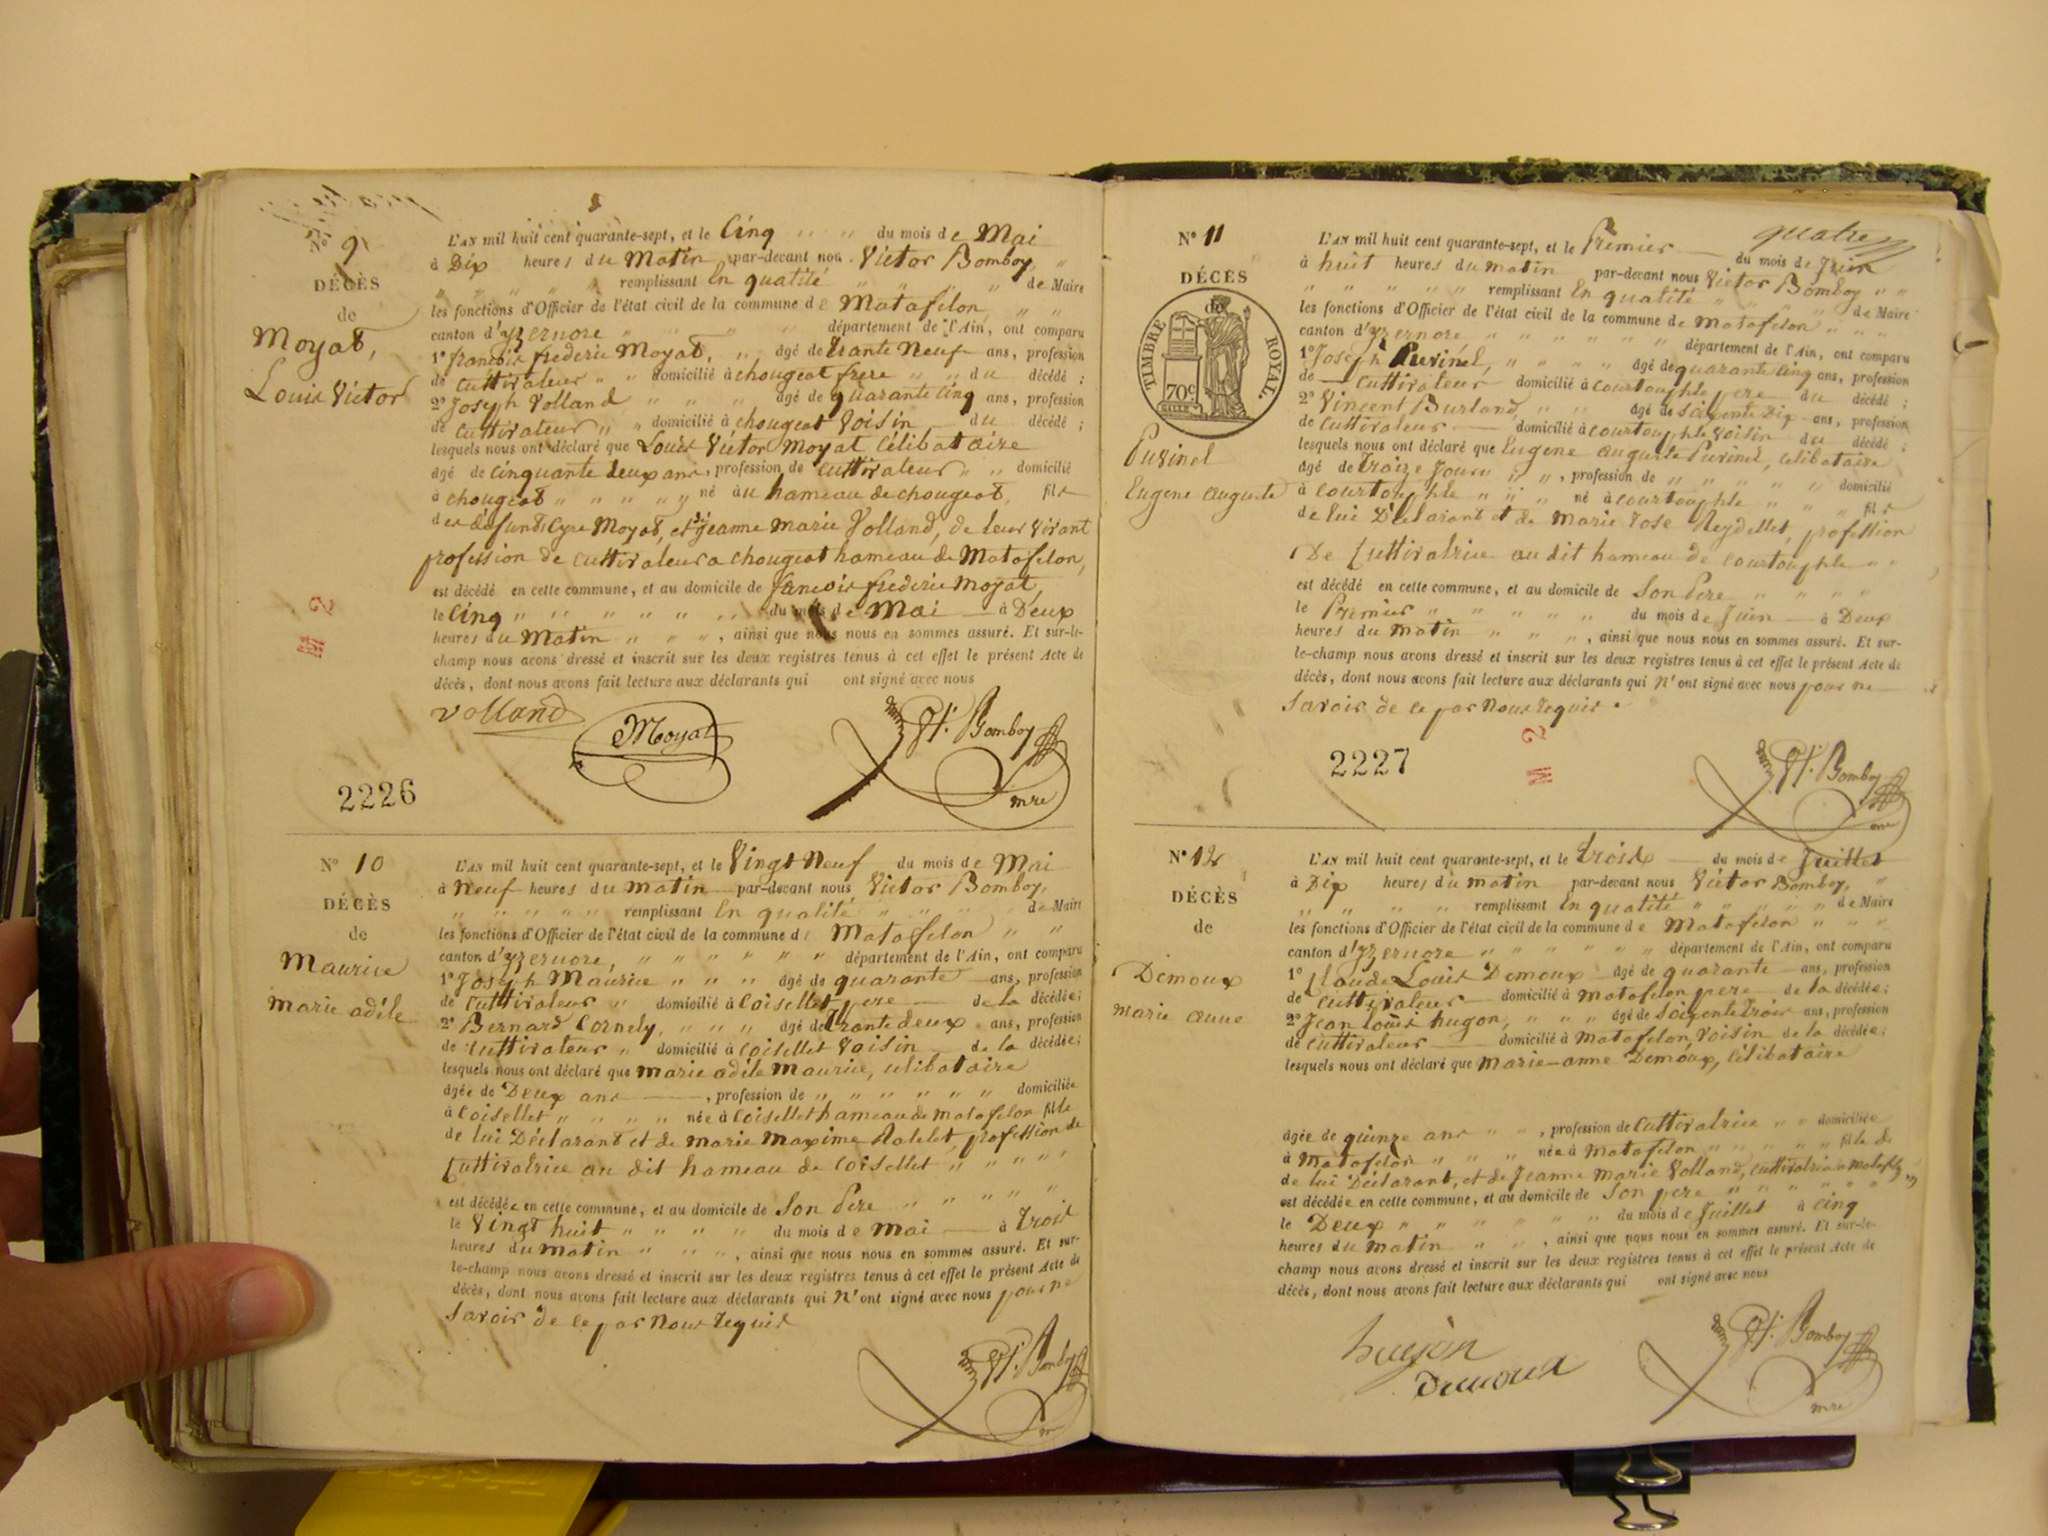 N° 9
DÉCÈS
de
Moyat,
Louis Victor
L'AN mil huit cent quarante-sept, et le Cinq " " du mois de Mai
à Dix heures du Matin par-devant nous Victor Bomboy, "
" " " " " remplissant En qualité " " " " de Maire
les fonctions d'Officier de l'état civil de la commune de Matafelon, " "
canton d'yzernore " " " " " département de l'Ain, ont comparu
1° francois frederic Moyat, " " âgé de trante Neuf ans, profession
de Cultivateur " " domicilié à chougeat frere " " du décédé ;
2° Joseph Volland " " " " âgé de quarante Cinq ans, profession
de Cultivateur " " domicilié à chougeat Voisin du décédé ;
lesquels nous ont déclaré que Louis Victor Moyat Célibataire
âgé de Cinquante deux ans, profession de cultivateur " " domicilié
à chougeat " " " " " né au hameau de chougeat, fils
des défunts Cyre Moyat, et de Jeanne marie Volland, de leur Vivant
profession de cultivateurs a chougeat hameau de Matafelon,
est décédé en cette commune, et au domicile de francois frederic Moyat,
le Cinq " " " " " " " du mois de Mai à Deux
heures du Matin " " " , ainsi que nous nous en sommes assuré. Et sur-le-
champ nous avons dressé et inscrit sur les deux registres tenus à cet effet le présent Acte de
décès, dont nous avons fait lecture aux déclarants qui ont signé avec nous
Volland Moyat Vr. Bomboy
mre
2226
N° 10
DÉCÈS
de
Maurice
marie adéle
L'AN mil huit cent quarante-sept, et le Vingt Neuf du mois de Mai
à Neuf heures du matin par-devant nous Victor Bomboy,
" " " " " remplissant En qualité " " " " de Maire
les fonctions d'Officier de l'état civil de la commune de Matafelon " "
canton d'yzernore, " " " " " " département de l'Ain, ont comparu
1° Joseph Maurice " " " " âgé de quarante ans, profession
de Cultivateur " domicilié à Coisellet pere de la décédée;
2° Bernard Cornely, " " " " âgé de trante deux ans, profession
de Cultivateur " domicilié à Coisellet Voisin de la décédée;
lesquels nous ont déclaré que marie adéle Maurice, celibataire
âgée de Deux ans , profession de " " " " " " domiciliée
à Coisellet " " " " " née à Coisellet hameau de matafelon fille
de lui Déclarant et de marie maxime profession de
Cultivatrice au dit hameau de Coisellet " " " " "
est décédée en cette commune, et au domicile de Son Pere " " " " "
le Vingt huit " " " " " du mois de mai à trois
heures du matin " " " " , ainsi que nous nous en sommes assuré. Et sur-
le-champ nous avons dressé et inscrit sur les deux registres tenus à cet effet le présent Acte de
décès, dont nous avons fait lecture aux déclarants qui N'ont signé avec nous pour ne
Savoir de ce par Nous requis
Vr. Bomboy
quatre
N° 11
DÉCÈS
de
TIMBRE ROYAL.
70c
Puvinel
Eugene auguste
L'AN mil huit cent quarante-sept, et le Premier du mois de Juin
à huit heures du matin par-devant nous Victor Bomboy " "
" " " " " remplissant En qualité " " " de Maire
les fonctions d'Officier de l'état civil de la commune de matafelon " " "
canton d'yzernore " " " " " " " département de l'Ain, ont comparu
1° Joseph Puvinel, " " " " âgé de quarante Cinq ans, profession
de Cultivateur domicilié à Courtouphle pere du décédé ;
2° Vincent Burland, " " âgé de Soixente Dix ans, profession
de Cultivateur domicilié à courtouphle Voisin du décédé ;
lesquels nous ont déclaré que Eugene auguste Puvinel, celibataire
âgé de Traize Jours " " " , profession de " " " " " domicilié
à courtouphle " " " né à courtouphle " " " fils
de lui Déclarant et de marie rose Reydellet, profession
De Cultivatrice au dit hameau de courtouphle " "
est décédé en cette commune, et au domicile de Son Pere " " " "
le Premier " " " " " du mois de Juin à Deux
heures du matin " " " " , ainsi que nous nous en sommes assuré. Et sur-
le-champ nous avons dressé et inscrit sur les deux registres tenus à cet effet le présent Acte de
décès, dont nous avons fait lecture aux déclarants qui N'ont signé avec nous pour ne
Savoir de ce par Nous requis.
2227
Vr. Bomboy
mre
N° 12
DÉCÈS
de
Demoux
marie anne
L'AN mil huit cent quarante-sept, et le trois du mois de Juillet
à Dix heures du matin par-devant nous Victor Bomboy, "
" " " " remplissant En qualité " " " " " de Maire
les fonctions d'Officier de l'état civil de la commune de Matafelon " " "
canton d'yzernore " " " " " " département de l'Ain, ont comparu
1° Claude Louis Demoux âgé de quarante ans, profession
de Cultivateur domicilié à matafelon pere de la décédée;
2° Jean Louis hugon, " " " âgé de Soixente trois ans, profession
de Cultivateur domicilié à matafelon, Voisin de la décédée;
lesquels nous ont déclaré que Marie-anne Demoux, Celibataire
âgée de quinze ans " " , profession de Cultivatrice " " domiciliée
à Matafelon " " " " née à Matafelon " " " " " fille de
de lui Déclarant, et de Jeanne Marie Volland, cultivatrice a
est décédée en cette commune, et au domicile de Son pere " " " " " "
le Deux " " " " " " du mois de Juillet à Cinq
heures du Matin " " " , ainsi que nous nous en sommes assuré. Et sur-le-
champ nous avons dressé et inscrit sur les deux registres tenus à cet effet le présent Acte de
décès, dont nous avons fait lecture aux déclarants qui ont signé avec nous
hugon
Demoux
Vr. Bomboy
mre